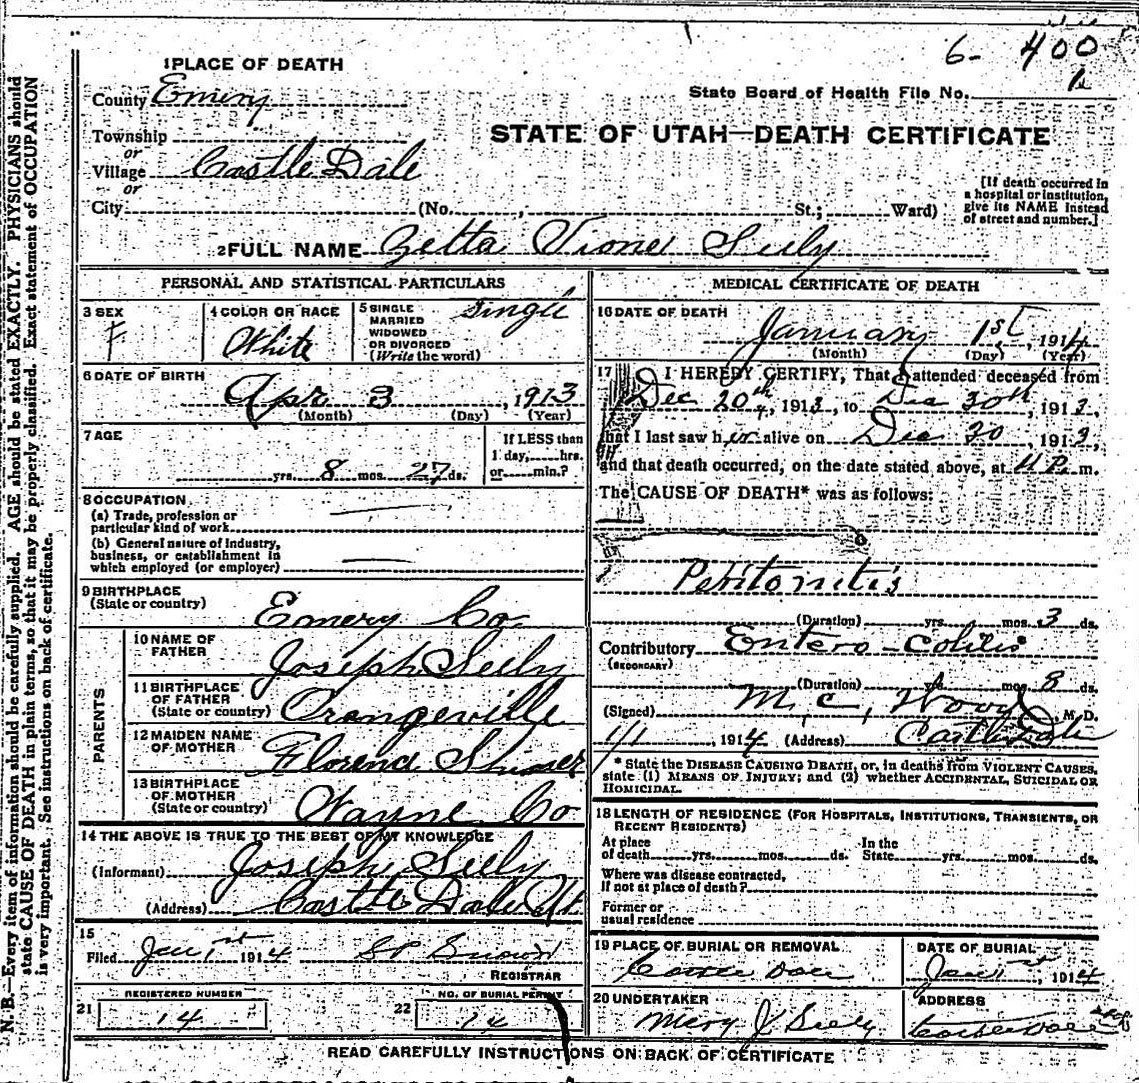 6- 400
1PLACE OF DEATH
State Board of Health File No. 1
County Emery
STATE OF UTAH—DEATH CERTIFICATE
Township
or
Village Castle Dale
or
City (No. , St.; Ward)
[If death occurred in
a hospital or institution,
give its NAME instead
of street and number.]
2FULL NAME Zetta Vione Seely
PERSONAL AND STATISTICAL PARTICULARS
3 SEX
F
4 COLOR OR RACE
White
5 SINGLE
MARRIED
WIDOWED
OR DIVORCED
(Write the word)
Single
6 DATE OF BIRTH
Apr 3, 1913
(Month) (Day) (Year)
7 AGE
yrs. 8 mos. 27 ds.
If LESS than
1 day, hrs.
or min.?
8 OCCUPATION
(a) Trade, profession or
particular kind of work
(b) General nature of industry,
business, or establishment in
which employed (or employer)
9 BIRTHPLACE
(State or country) Emery Co
PARENTS
10 NAME OF
FATHER Joseph Seely
11 BIRTHPLACE
OF FATHER
(State or country) Orangeville
12 MAIDEN NAME
OF MOTHER Florend
13 BIRTHPLACE
OF MOTHER
(State or country) Wayne Co
14 THE ABOVE IS TRUE TO THE BEST OF MY KNOWLEDGE
(Informant) Joseph Seely
(Address) Castle Dale Ut
15
Filed Jan 1st 1914
REGISTRAR
21 REGISTERED NUMBER
14
22 NO. OF BURIAL PERMIT
14
MEDICAL CERTIFICATE OF DEATH
16 DATE OF DEATH
January 1st, 1914
(Month) (Day) (Year)
17 I HEREBY CERTIFY, That I attended deceased from
Dec 20th, 1913, to Dec 30th, 1913,
that I last saw her alive on Dec 30, 1913,
and that death occurred, on the date stated above, at 11 P. m.
The CAUSE OF DEATH* was as follows:
Peritonitis
(Duration) yrs. mos. 3 ds.
Contributory Entero-Colitis
(SECONDARY)
(Duration) yrs. mos. 8 ds.
(Signed) M. C. Wood M. D.
1/1, 1914 (Address) Castle Dale
* State the DISEASE CAUSING DEATH, or, in deaths from VIOLENT CAUSES,
state (1) MEANS OF INJURY; and (2) whether ACCIDENTAL, SUICIDAL OR
HOMICIDAL.
18 LENGTH OF RESIDENCE (FOR HOSPITALS, INSTITUTIONS, TRANSIENTS, OR
RECENT RESIDENTS)
At place
of death yrs. mos. ds.
In the
State yrs. mos. ds.
Where was disease contracted,
if not at place of death?
Former or
usual residence
19 PLACE OF BURIAL OR REMOVAL
Castle Dale
DATE OF BURIAL
Jan 1st, 1914
20 UNDERTAKER
Mery J Seely
ADDRESS
Castle Dale
READ CAREFULLY INSTRUCTIONS ON BACK OF CERTIFICATE
N. B.—Every item of information should be carefully supplied. AGE should be stated EXACTLY. PHYSICIANS should
state CAUSE OF DEATH in plain terms, so that it may be properly classified. Exact statement of OCCUPATION
is very important. See instructions on back of certificate.